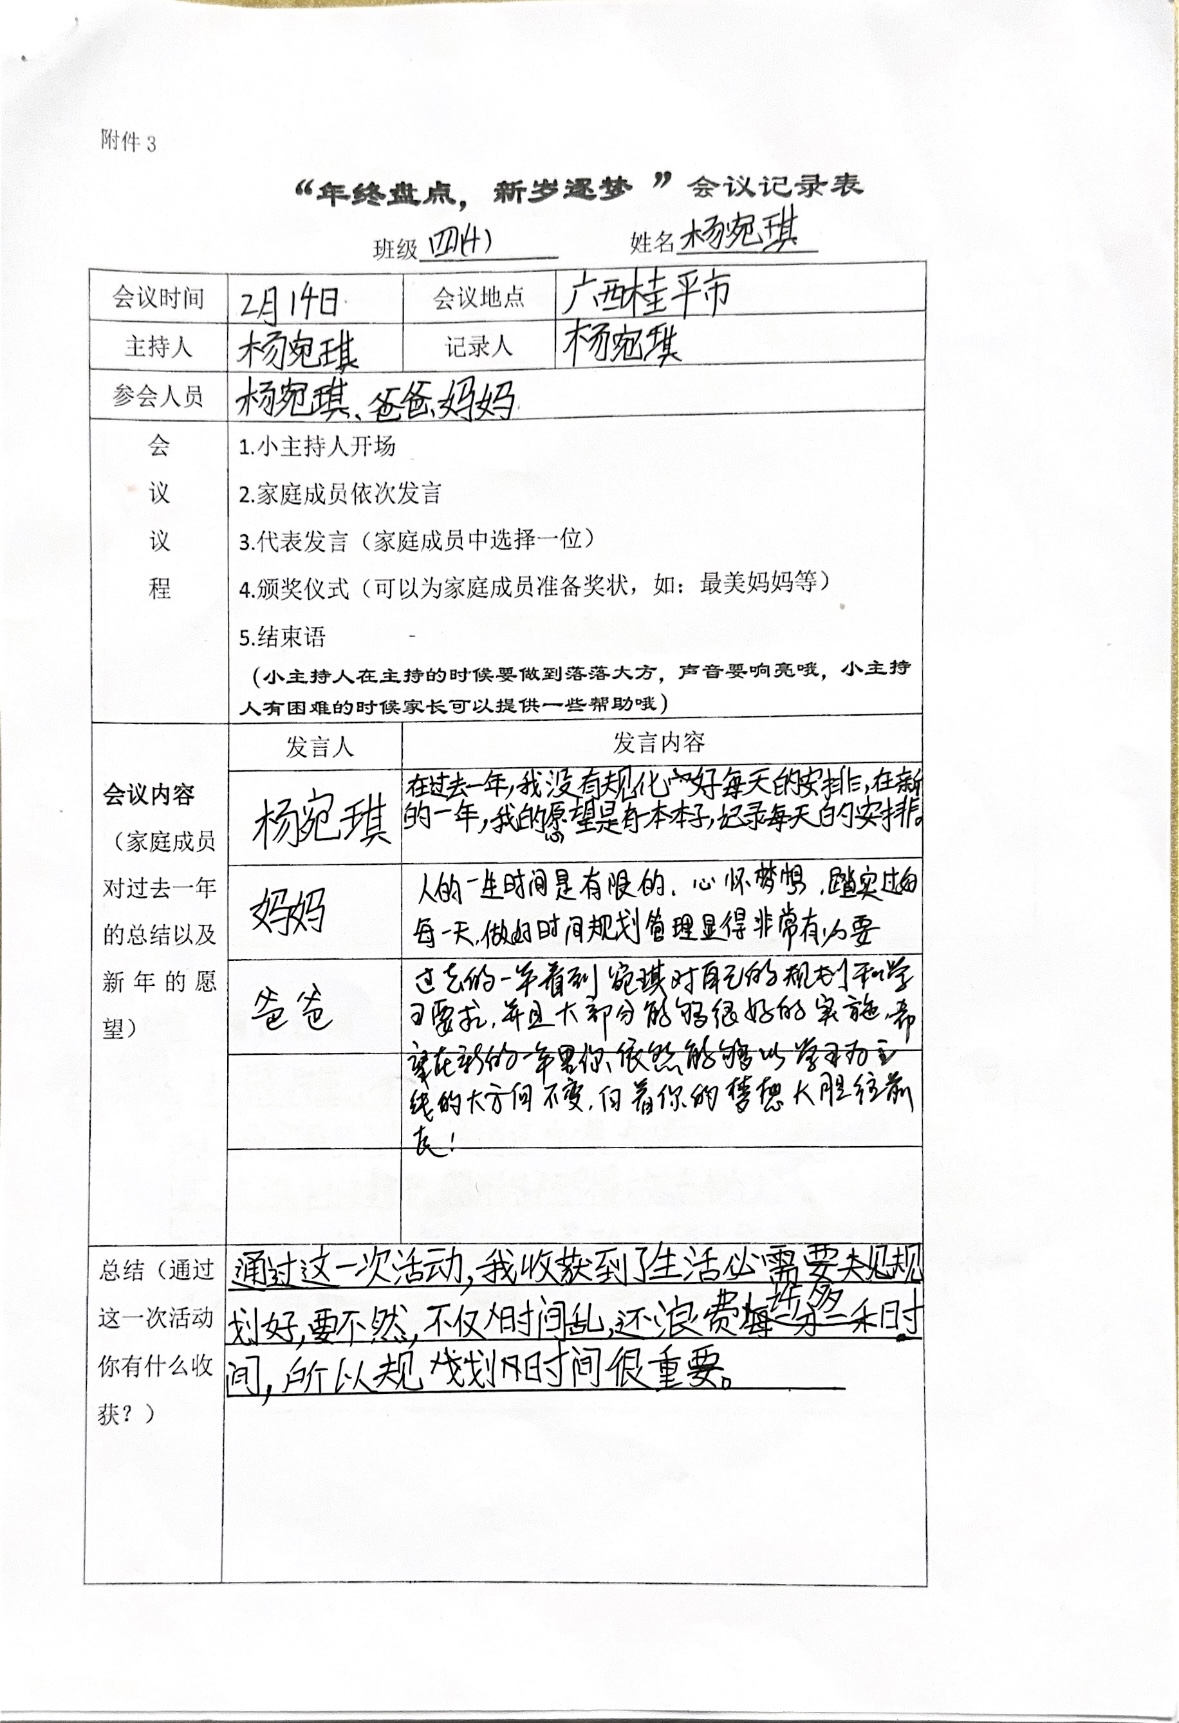 附件 3
“年终盘点，新岁逐梦 ”会议记录表
班级 四(4) 姓名 杨宛琪
会议时间 2月14日 会议地点 广西桂平市
主持人 杨宛琪 记录人 杨宛琪
参会人员 杨宛琪、爸爸、妈妈
会 1.小主持人开场
议 2.家庭成员依次发言
议 3.代表发言（家庭成员中选择一位）
程 4.颁奖仪式（可以为家庭成员准备奖状，如：最美妈妈等）
5.结束语
（小主持人在主持的时候要做到落落大方，声音要响亮哦，小主持
人有困难的时候家长可以提供一些帮助哦）
发言人 发言内容
会议内容
（家庭成员
对过去一年
的总结以及
新年的愿
望）
杨宛琪
在过去一年,我没有规化好每天的安排,在新
的一年,我的愿望是有一本本子,记录每天的安排。
妈妈
人的一生时间是有限的，心怀梦想，踏实过好
每一天,做好时间规划管理显得非常有必要
爸爸
过去的一年看到宛琪对自己的规划和学
习要求,并且大部分能够很好的实施,希
望在新的一年里你依然能够以学习为主
线的大方向不变,向着你的梦想大胆往前
走!
总结（通过
这一次活动
你有什么收
获？）
通过这一次活动,我收获到了生活必需要规
划好,要不然,不仅时间乱,还浪费好多时
间,所以规划时间很重要。